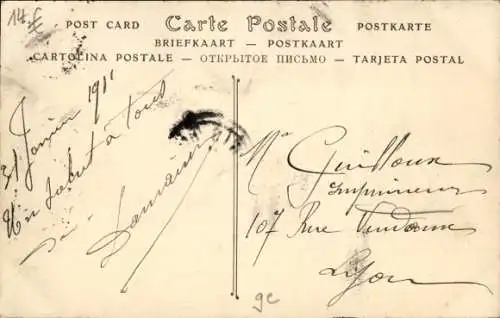 14 €
POST CARD Carte Postale POSTKARTE
BRIEFKAART — POSTKAART
CARTOLINA POSTALE — ОТКРЫТОЕ ПИСЬМО — TARJETA POSTAL
21 Janvier 1911
Un salut à tous
Mr Guilloux
Imprimeur
107 Rue Vendome
Lyon
gc